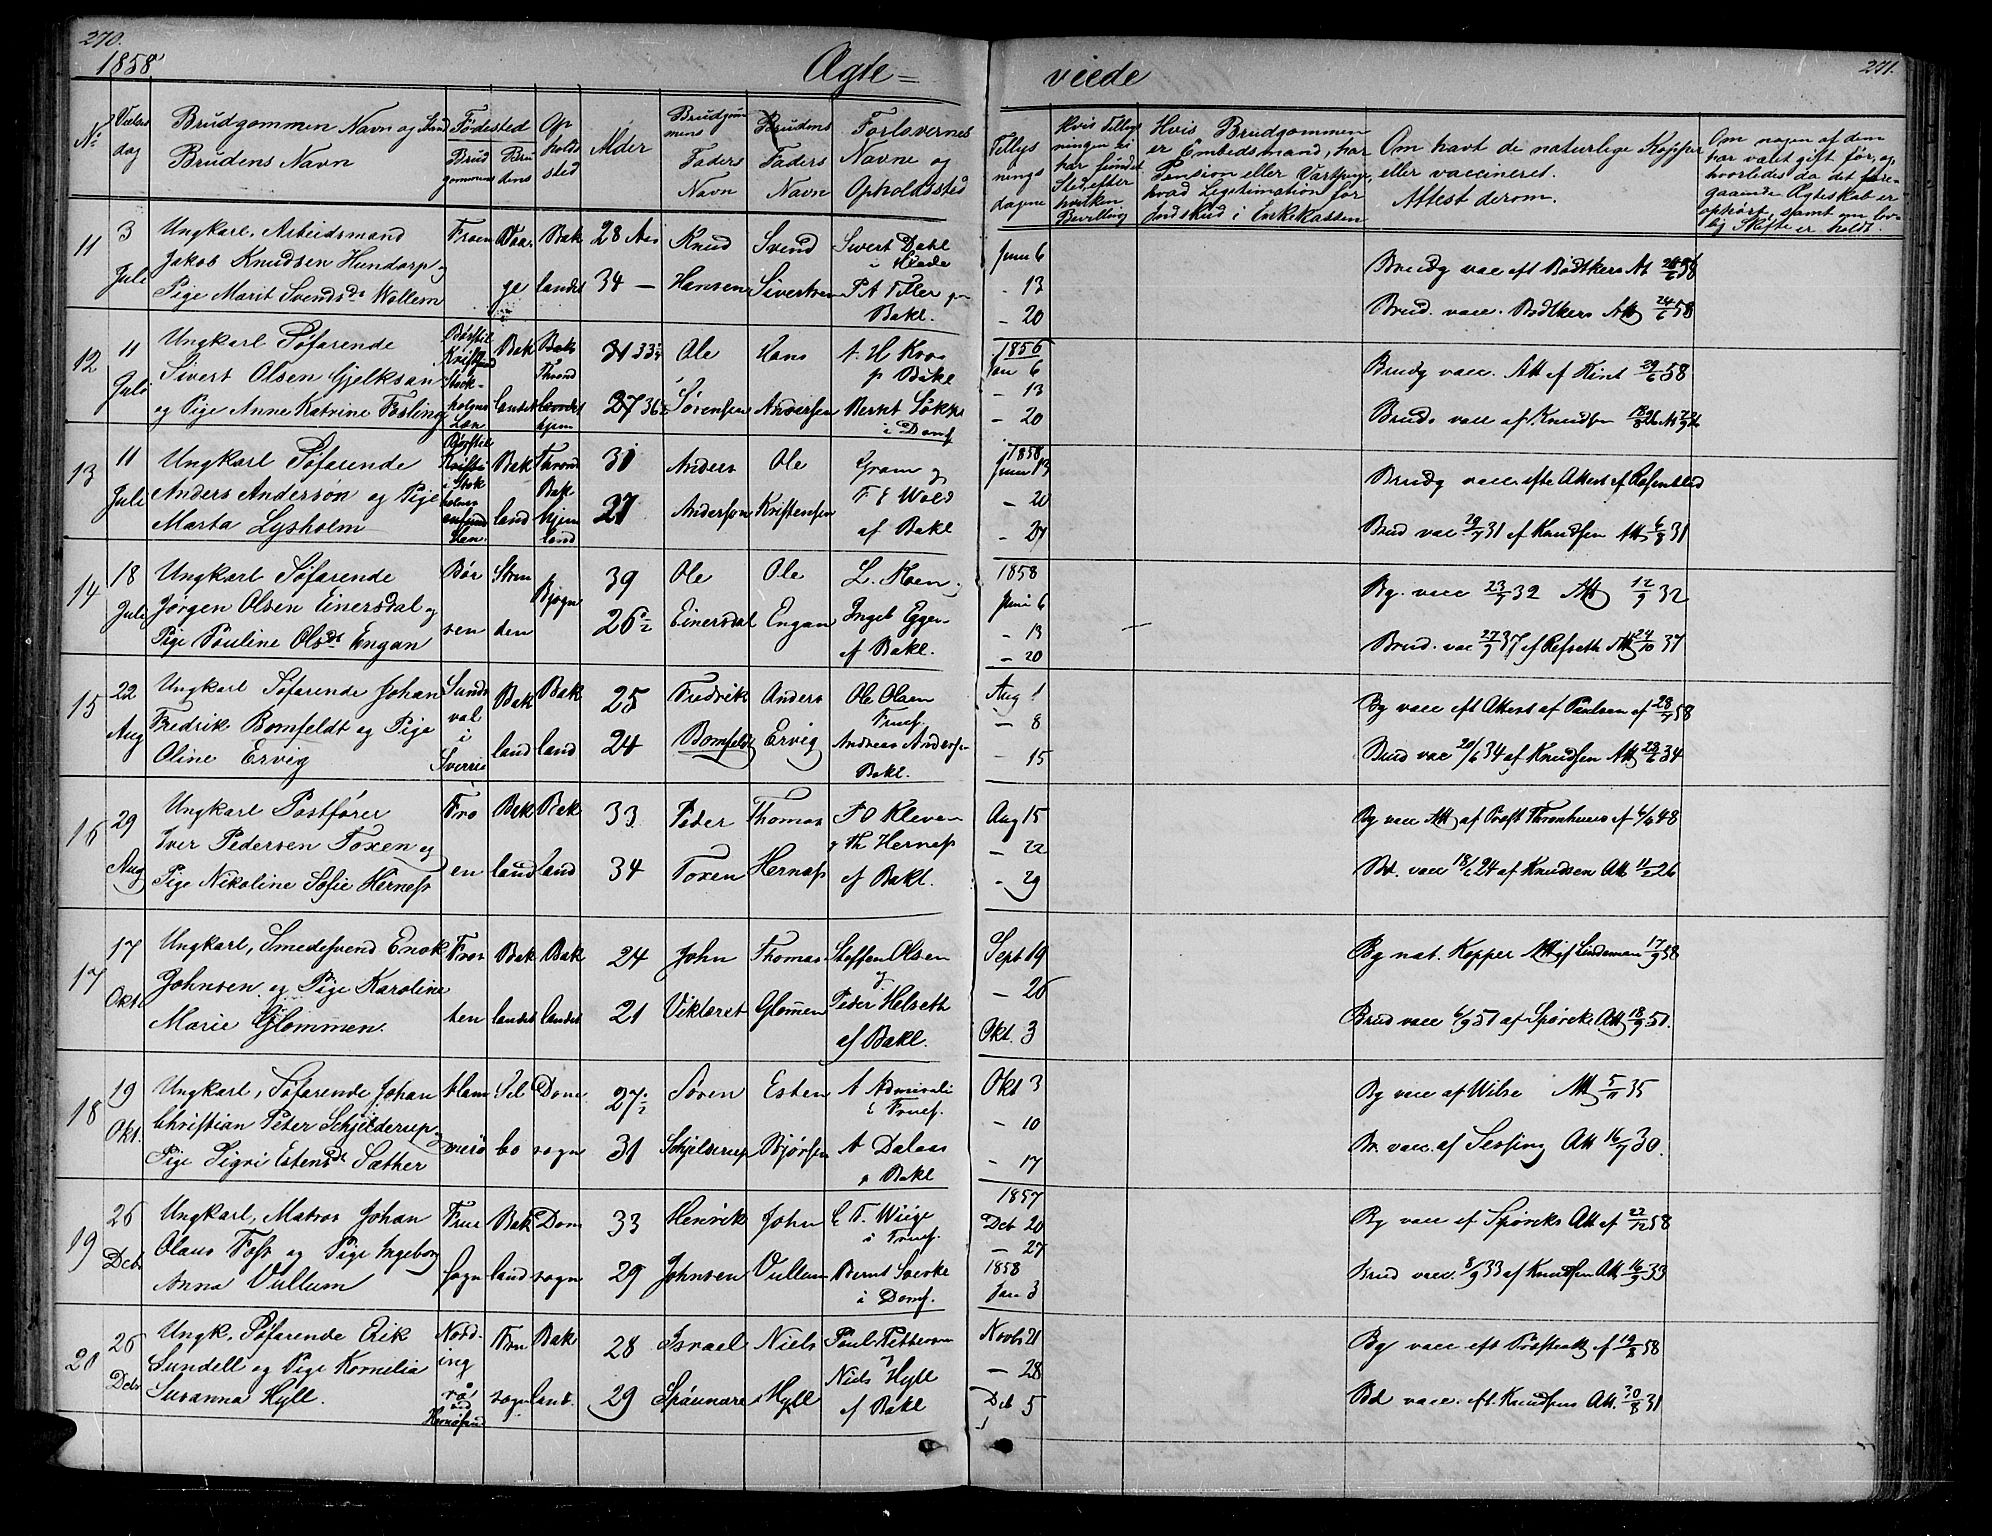 270.
1858
Ægte= viede
271.
No
Vielses dag
Brudgommen Navn og
Brudens Navn
Fødested
Brud gommens
Bru dens
Op holds sted
Alder
Brudgom mens Faders Navn
Brudens Faders Navn
Forlovernes Navne og Opholdssted
Tillys nings dagne
Hvis Tillys ningen ei har fundet Sted, efter hvilken Bevilling
Hvis Brudgommen er Embedsmand, har Pension eller Vartpenge, hvad Legitimation for Indskud i Enkekassen
Om havt de naturlige Kopper eller vaccineret. Attest derom.
Om nogen af dem har været gift før, og hvorledes da det fore- gaaende Ægteskab er ophørt, samt om lov- lig Skifte er holdt.
11 3 Juli
Ungkarl, Arbeidsmand
Jakob Knudsen Hundorp og
Pige Marit Svendsdr Wollem
Bak landet
28 Aar
34 —
Knud Hansen
Svend Sivertsen
Sivert Dahl i
P A Tiller
Bakl.
Juni 6
- 13
- 20
Brudg vac eft Bødtkers At 58
Brud. vacc. Bødtkers Att 24/6 58
12 11 Juli
Ungkarl Søfarende
Sivert Olsen Gjelksan
og Pige Anne Katrine Fosling
Bak landet
31 33½
27 36
Ole Sørensen
Hans Andersen
A. H. Kroo p Bakl
Bernt Løkke
i Doms
1856
Jan 6
- 13
- 20
Brudg vacc. Att af Kint 29/6 58
Brud vacc af Knudsen
13 11 Juli
Ungkarl Søfarende
Anders Andersøn og Pige
Marta Lysholm
Bak land
31
27
Anders Andersøn
Ole Kristensen
Gram og
F E Wold
af Bakl
1858
Juni 13
- 20
- 27
Brudg vacc efte Attest af Rosenblad
Brud vac 29/7 31 af Knudsen Att 6/8 31
14 18 Juli
Ungkarl Søfarende
Jørgen Olsen Einersdal og
Pige Pauline Olsdr Engan
Bør sen
Strin den
Bjogn
39
26½
Ole Einersdal
Ole Engan
L. Moen
Ingeb Eggen
af Bakl.
1858
Juni 6
- 13
- 20
Bg. vacc 23/9 32 Att 12/9 32
Brud. vac 27/9 37 af Refseth Att 24/10 37
15 22 Aug
Ungkarl Søfarende Johan
Fredrik Bomfeldt og Pige
Oline Ervig
Sunds val i Sverrig
Bak land
Bak land
25
24
Fredrik Bomfeldt
Anders Ervig
Ole Olsen
Fruef.
Andreas Andersen
Bakl.
Aug 1
- 8
- 15
Bg vacc eft Attest af Paulsen af 28/7 58
Brud vac 20/6 34 af Knudsen Att 28/6 34
16 29 Aug
Ungkarl Postfører
Iver Pedersen Foxen og
Pige Nikoline Sofie Hernæs
Fro en
Bak land
Bak land
33
34
Peder Foxen
Thomas Hernæs
F O Kleven
og Th Hernæs
af Bakl.
Aug 15
- 22
- 29
Bg vacc Att af Provst Thronhuus af 6/6 48
Bd. vacc 18/6 24 af Knudsen Att 26
17 17 Okt.
Ungkarl, Smedesvend Enok
Johnsen og Pige Karoline
Marie Glommen.
Fros ten
Bak landet
Bak landet
24
21
John Viktaret
Thomas Glommen
Steffen Olsen
og
Peder Helseth
af Bakl.
Sept 19
- 26
Okt. 3
Bg nat. Kopper Att af Lindeman 17/9 58
Brud vacc 6/9 51 af Spørck Att 18/9 51.
18 19 Okt.
Ungkarl, Søfarende Johan
Christian Peter Schjelderup og
Pige Sigri Estensdr Sæther
Ham merø
Sel bo
Dom sogn
27½
31
Søren Schjelderup
Esten Bjørsen
A Admirali
i Fruef.
A Dalaas
p Bakl
Okt 3
- 10
- 17
Bg vacc af Wilse Att 5/11 35
Br. vacc. af Sessing Att 16/7 30.
19 26 Dcb
Ungkarl, Matros Johan
Olaus Foss og Pige Ingeborg
Anna Vullum
Frue sogn
Bak land
Dom sogn
33
29
Henrik Johnsen
John Vullum
C T. Wiige
i Fruef.
Bernt Sveske
i Domf.
1857
Dcb 20
- 27
1858
Jan 3
Bg vacc af Spørcks Att af 22/12 58
Brud vacc. 8/9 33 af Knudsen Att 16/9 33
20 26 Dcb
Ungk. Søfarende Erik
Lundell og Pige Kornelia
Susanna Hyll.
Nord- ing rå ved Hernøsand
Fru sogn
Bak land.
28
29
Israel Spåmare
Niels Hyll
Paul Petterson
og
Niels Hyll
af Bakl
Novb 21
- 28
Dcb 5
Bg vacc eft Præsteatt af 19/8 58
Bd vacc. eft. Knudsens Att. 30/8 31